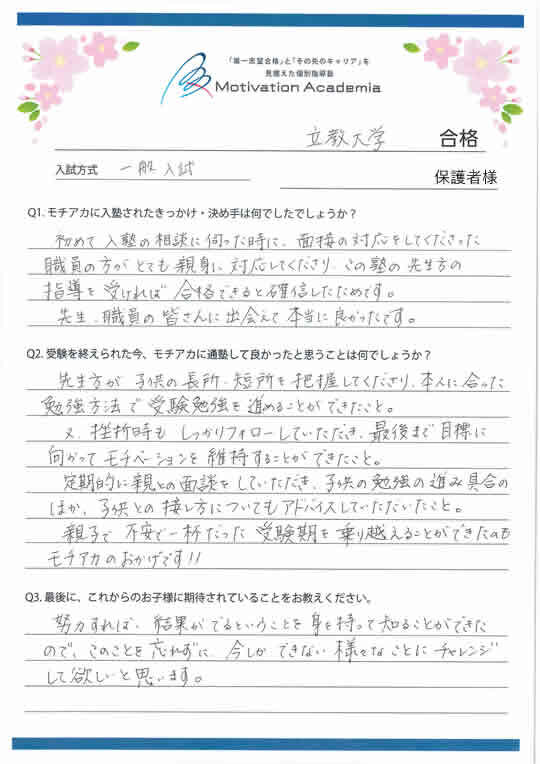 「第一志望合格」と「その先のキャリア」を
見据えた個別指導塾
Motivation Academia
立教大学 合格
入試方式 一般入試
保護者様
Q1. モチアカに入塾されたきっかけ・決め手は何でしたでしょうか？
初めて入塾の相談に伺った時に、面接の対応をしてくださった
職員の方がとても親身に対応してくださり、この塾の先生方の
指導を受ければ合格できると確信したためです。
先生、職員の皆さんに出会えて本当に良かったです。
Q2. 受験を終えられた今、モチアカに通塾して良かったと思うことは何でしょうか？
先生方が子供の長所、短所を把握してくださり、本人に合った
勉強方法で受験勉強を進めることができたこと。
又、挫折時もしっかりフォローしていただき、最後まで目標に
向かってモチベーションを維持することができたこと。
定期的に親との面談をしていただき、子供の勉強の進み具合の
ほか、子供との接し方についてもアドバイスしていただいたこと。
親子で不安で一杯だった受験期を乗り越えることができたのも
モチアカのおかげです!!
Q3. 最後に、これからのお子様に期待されていることをお教えください。
努力すれば、結果がでるということを身を持って知ることができた
ので、このことを忘れずに、今しかできない様々なことにチャレンジ
して欲しいと思います。